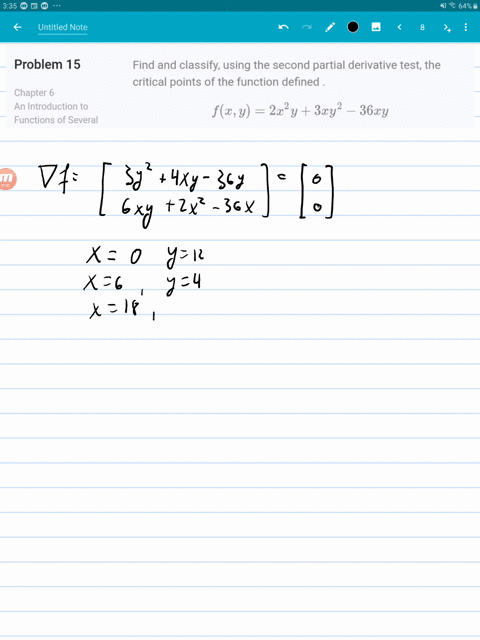 3:35 64%
Untitled Note 8
Problem 15
Chapter 6
An Introduction to
Functions of Several
Find and classify, using the second partial derivative test, the
critical points of the function defined .
f(x, y) = 2x²y + 3xy² − 36xy
∇f = [ 3y² + 4xy - 36y ] = [ 0 ]
[ 6xy + 2x² - 36x ] [ 0 ]
x = 0 y = 12
x = 6 , y = 4
x = 18 ,